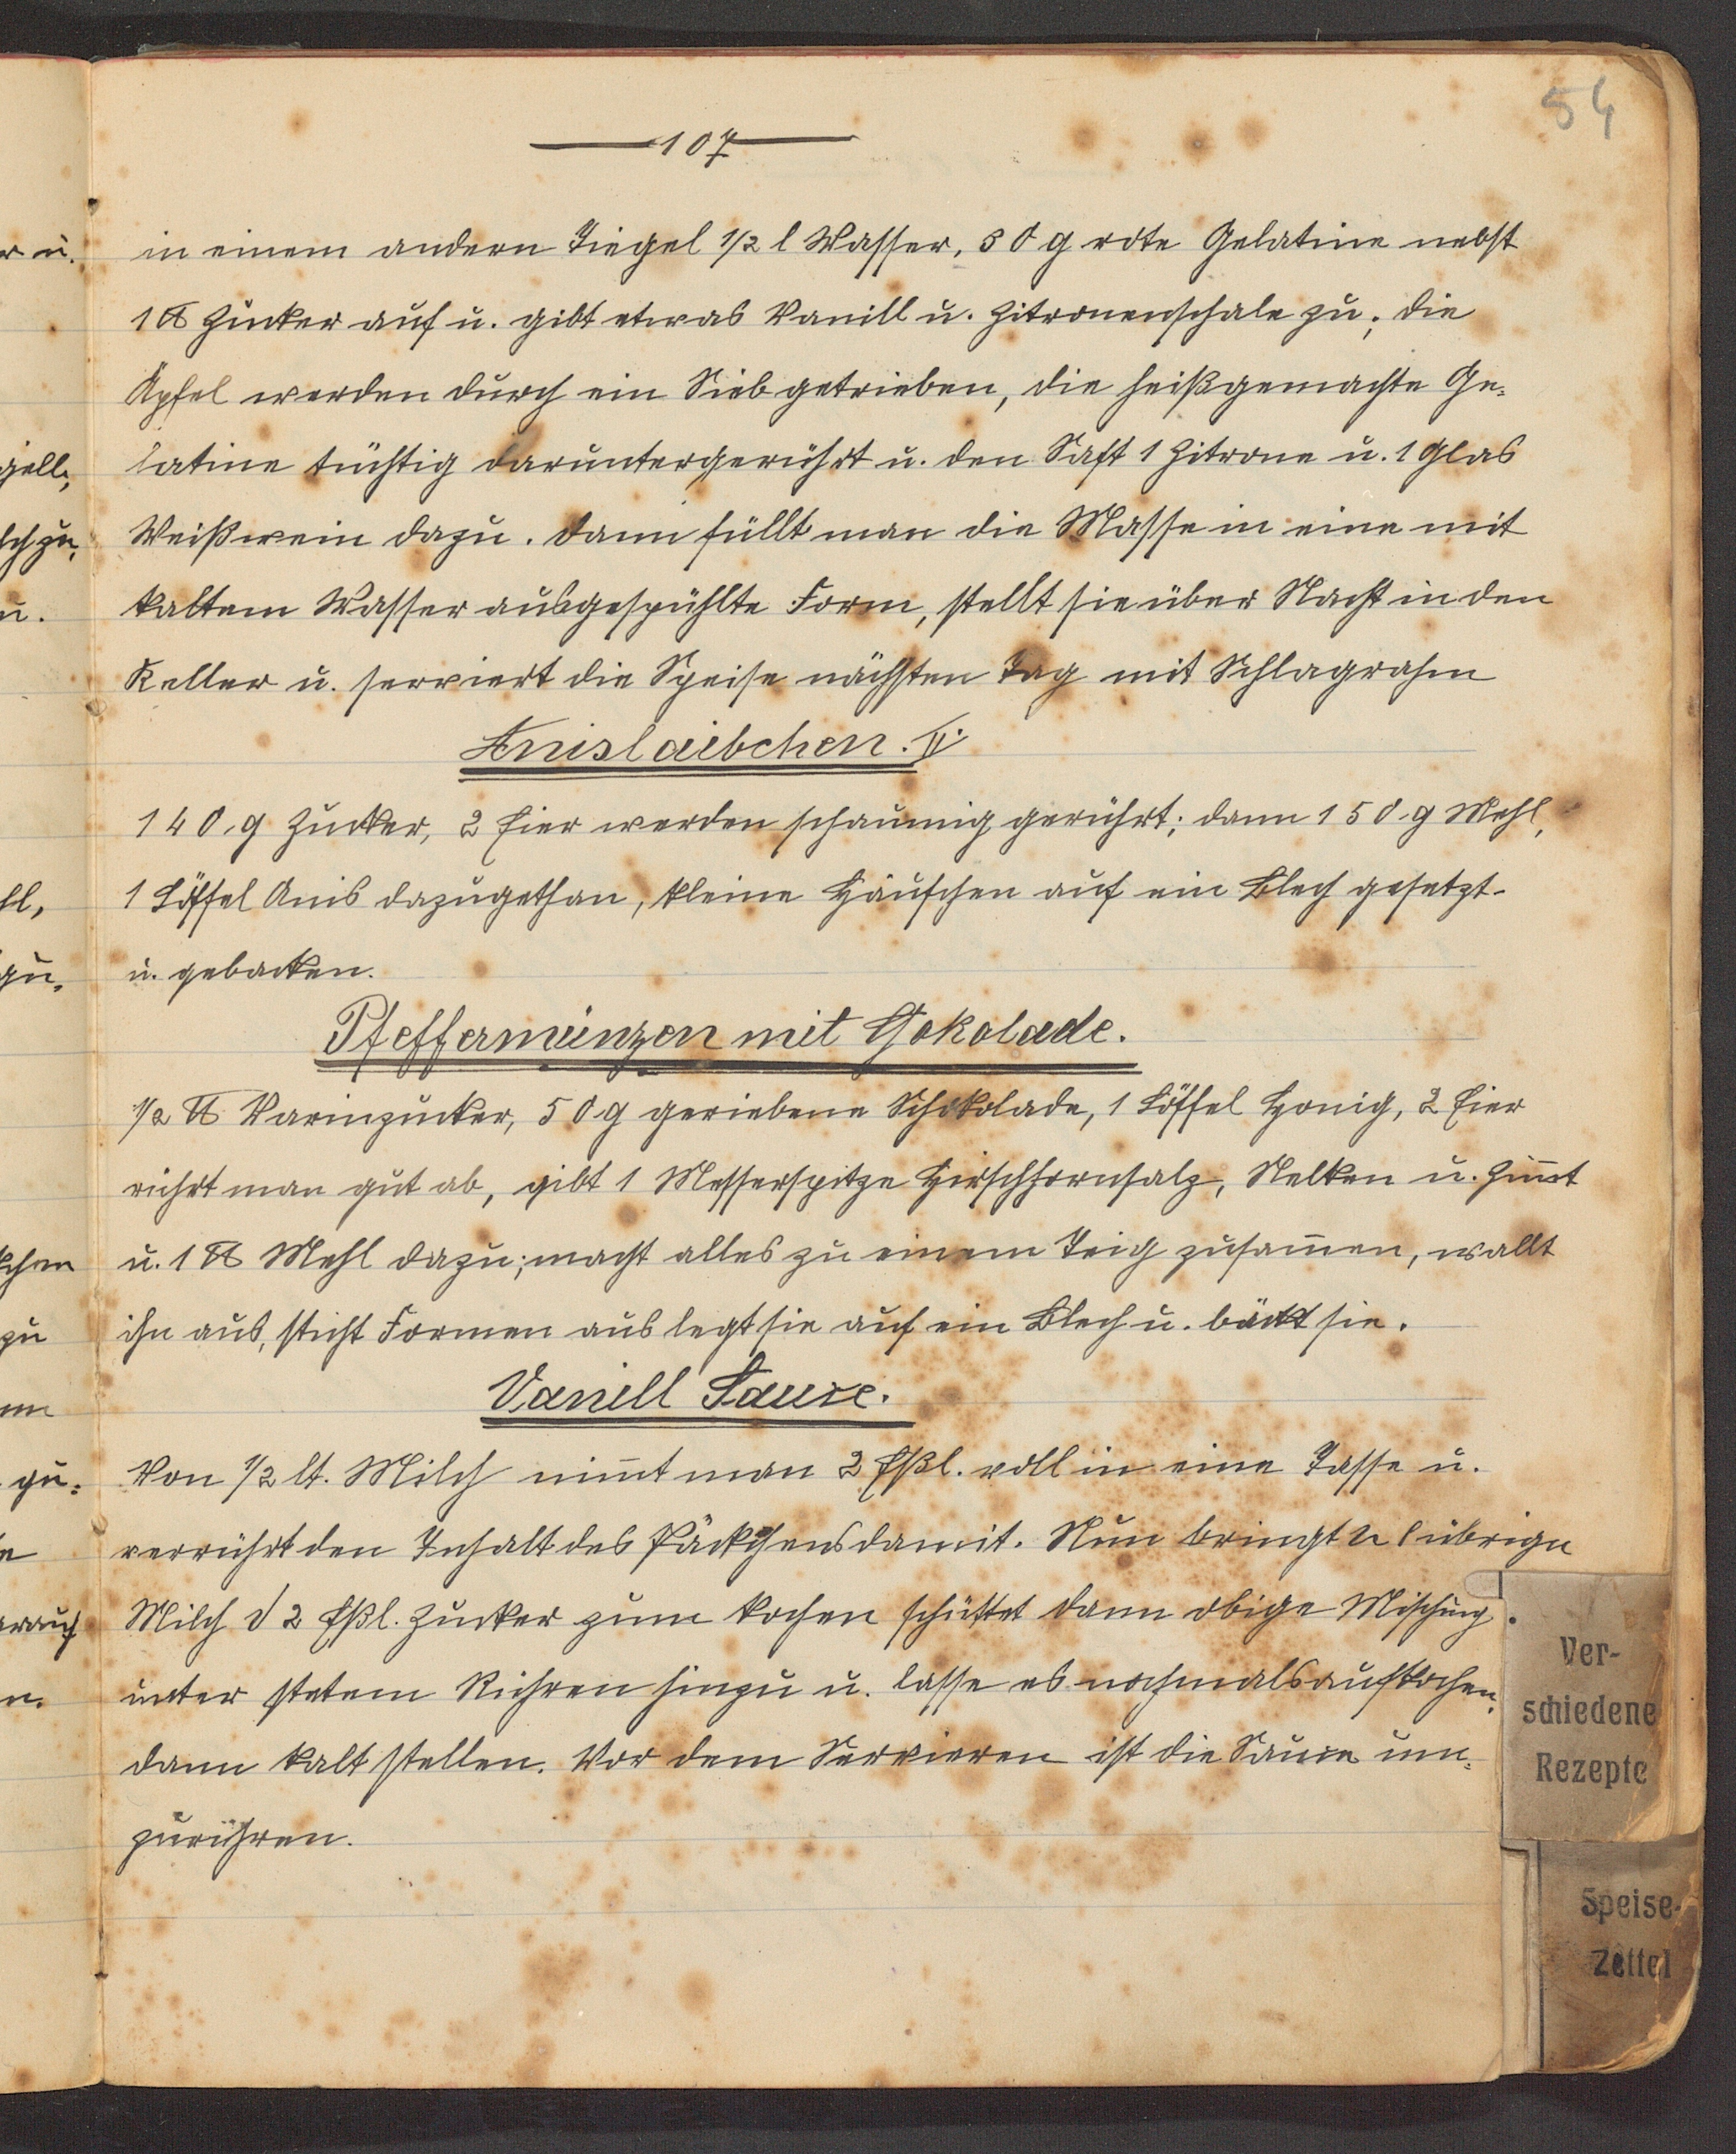 54
107
in einem andern Tiegel 1/2 l Wasser, 50 g rote Gelatine nebst
1 ℔ Zucker auf u. gibt etwas Vanill u. Zitronenschale zu; die
Äpfel werden durch ein Sieb getrieben, die heißgemachte Ge-
latine tüchtig daruntergerührt u. den Saft 1 Zitrone u. 1 Glas
Weißwein dazu. Dann füllt man die Masse in eine mit
kaltem Wasser ausgespühlte Form, stellt sie über Nacht in den
Keller u. serviert die Speise nächsten Tag mit Schlagrahm
Anislaibchen. II.
140 g Zucker, 2 Eier werden schaumig gerührt; dann 150 g Mehl,
1 Löffel Anis dazugethan, kleine Häufchen auf ein Blech gesetzt
u. gebacken.
Pfeffermünzen mit Chokolade.
1/2 ℔ Varinzucker, 50 g geriebene Schokolade, 1 Löffel Honig, 2 Eier
rührt man gut ab, gibt 1 Messerspitze Hirschhornsalz, Nelken u. Zim̄t
u. 1 ℔ Mehl dazu; macht alles zu einem Teig zusam̄en, wallt
ihn aus, sticht Formen aus legt sie auf ein Blech u. bäckt sie.
Vanill Sauce.
Von 1/2 lt. Milch nim̄t man 2 Eßl. voll in eine Tasse u.
verrührt den Inhalt des Päckchens damit. Nun bringt übrige
Milch 2 Eßl. Zucker zum kochen schüttet dann obige Mischung
unter stetem Rühren hinzu u. lasse es nochmals aufkochen,
dann kalt stellen. Vor dem Servieren ist die Sauce um-
zurühren.
Ver-
schiedene
Rezepte
Speise-
Zettel